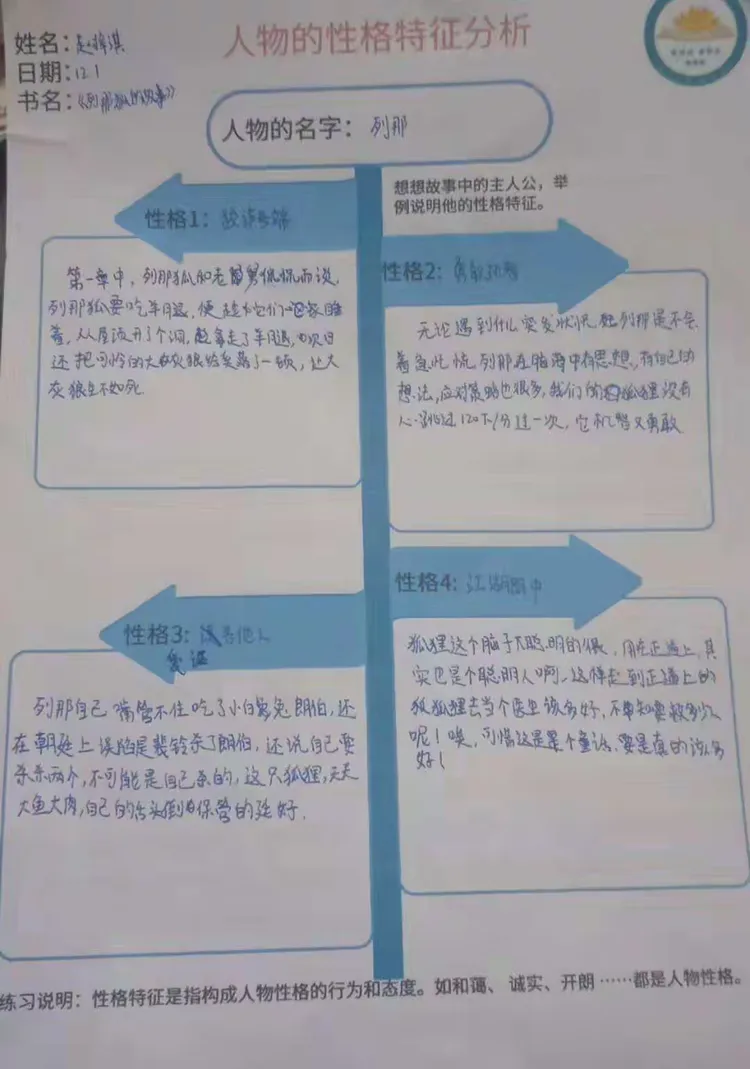 人物的性格特征分析
姓名：
日期：12.1
书名：《列那狐的故事》
人物的名字：列那
想想故事中的主人公，举
例说明他的性格特征。
性格1：狡诈多端
第一章中，列那狐和老舅侃侃而谈，
列那狐要吃羊腿，便趁它们一家睡
着，从屋顶开了个洞，拿走了羊腿，次日
还把可怜的大灰狼给奚落了一顿，让大
灰狼生不如死
性格2：勇敢机智
无论遇到什么突发状况，列那是不会
着急忙慌，列那在脑海中有思想，有自己的
想法，应对策略也很多，我们的狐狸没有
心跳超过120下/分过一次，它机智又勇敢
性格3：误害他人
列那自己嘴管不住吃了小白兔兔朗伯，还
在朝廷上误陷是裴铃杀了朗伯，还说自己要
杀杀两个，不可能是自己杀的，这只狐狸，天天
大鱼大肉，自己的舌头倒保管的挺好.
性格4：江湖聪中
狐狸这个脑子太聪明的很，用在正道上，其
实也是个聪明人啊，这样走到正道上的
狐狐狸去当个医生该多好，不知要救多少人
呢！唉，可惜这是个童话，要是真的该多
好！
练习说明：性格特征是指构成人物性格的行为和态度。如和蔼、诚实、开朗……都是人物性格。